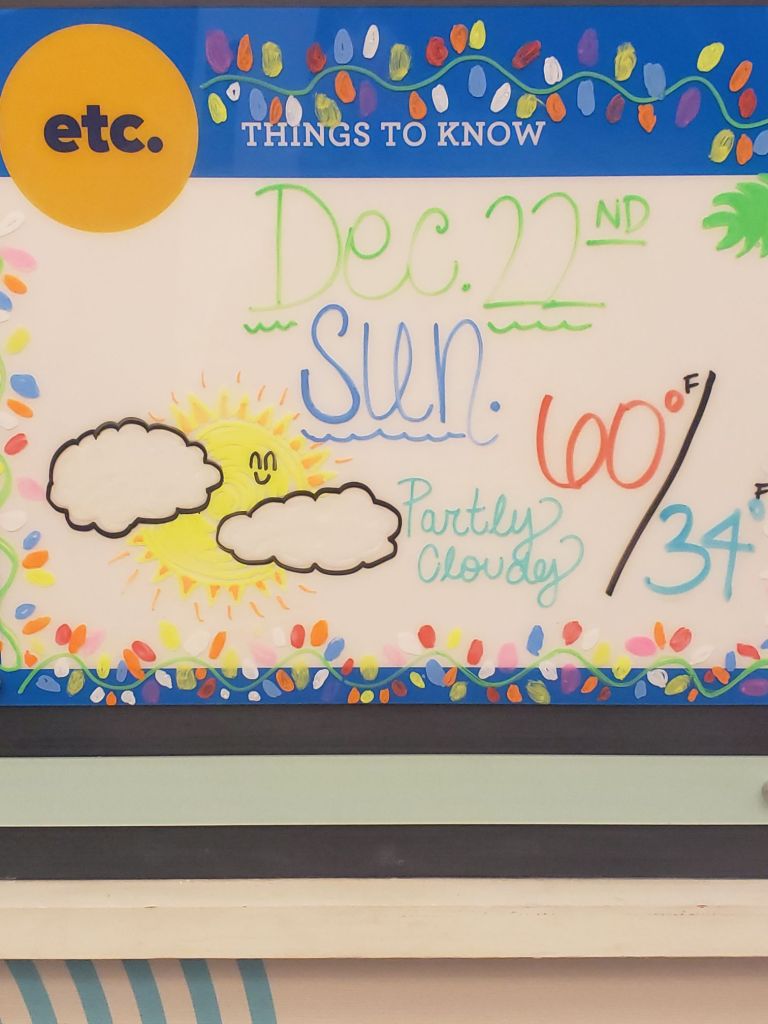 etc.
THINGS TO KNOW
Dec. 22ND
Sun.
60°F/34°F
Partly
Cloudy